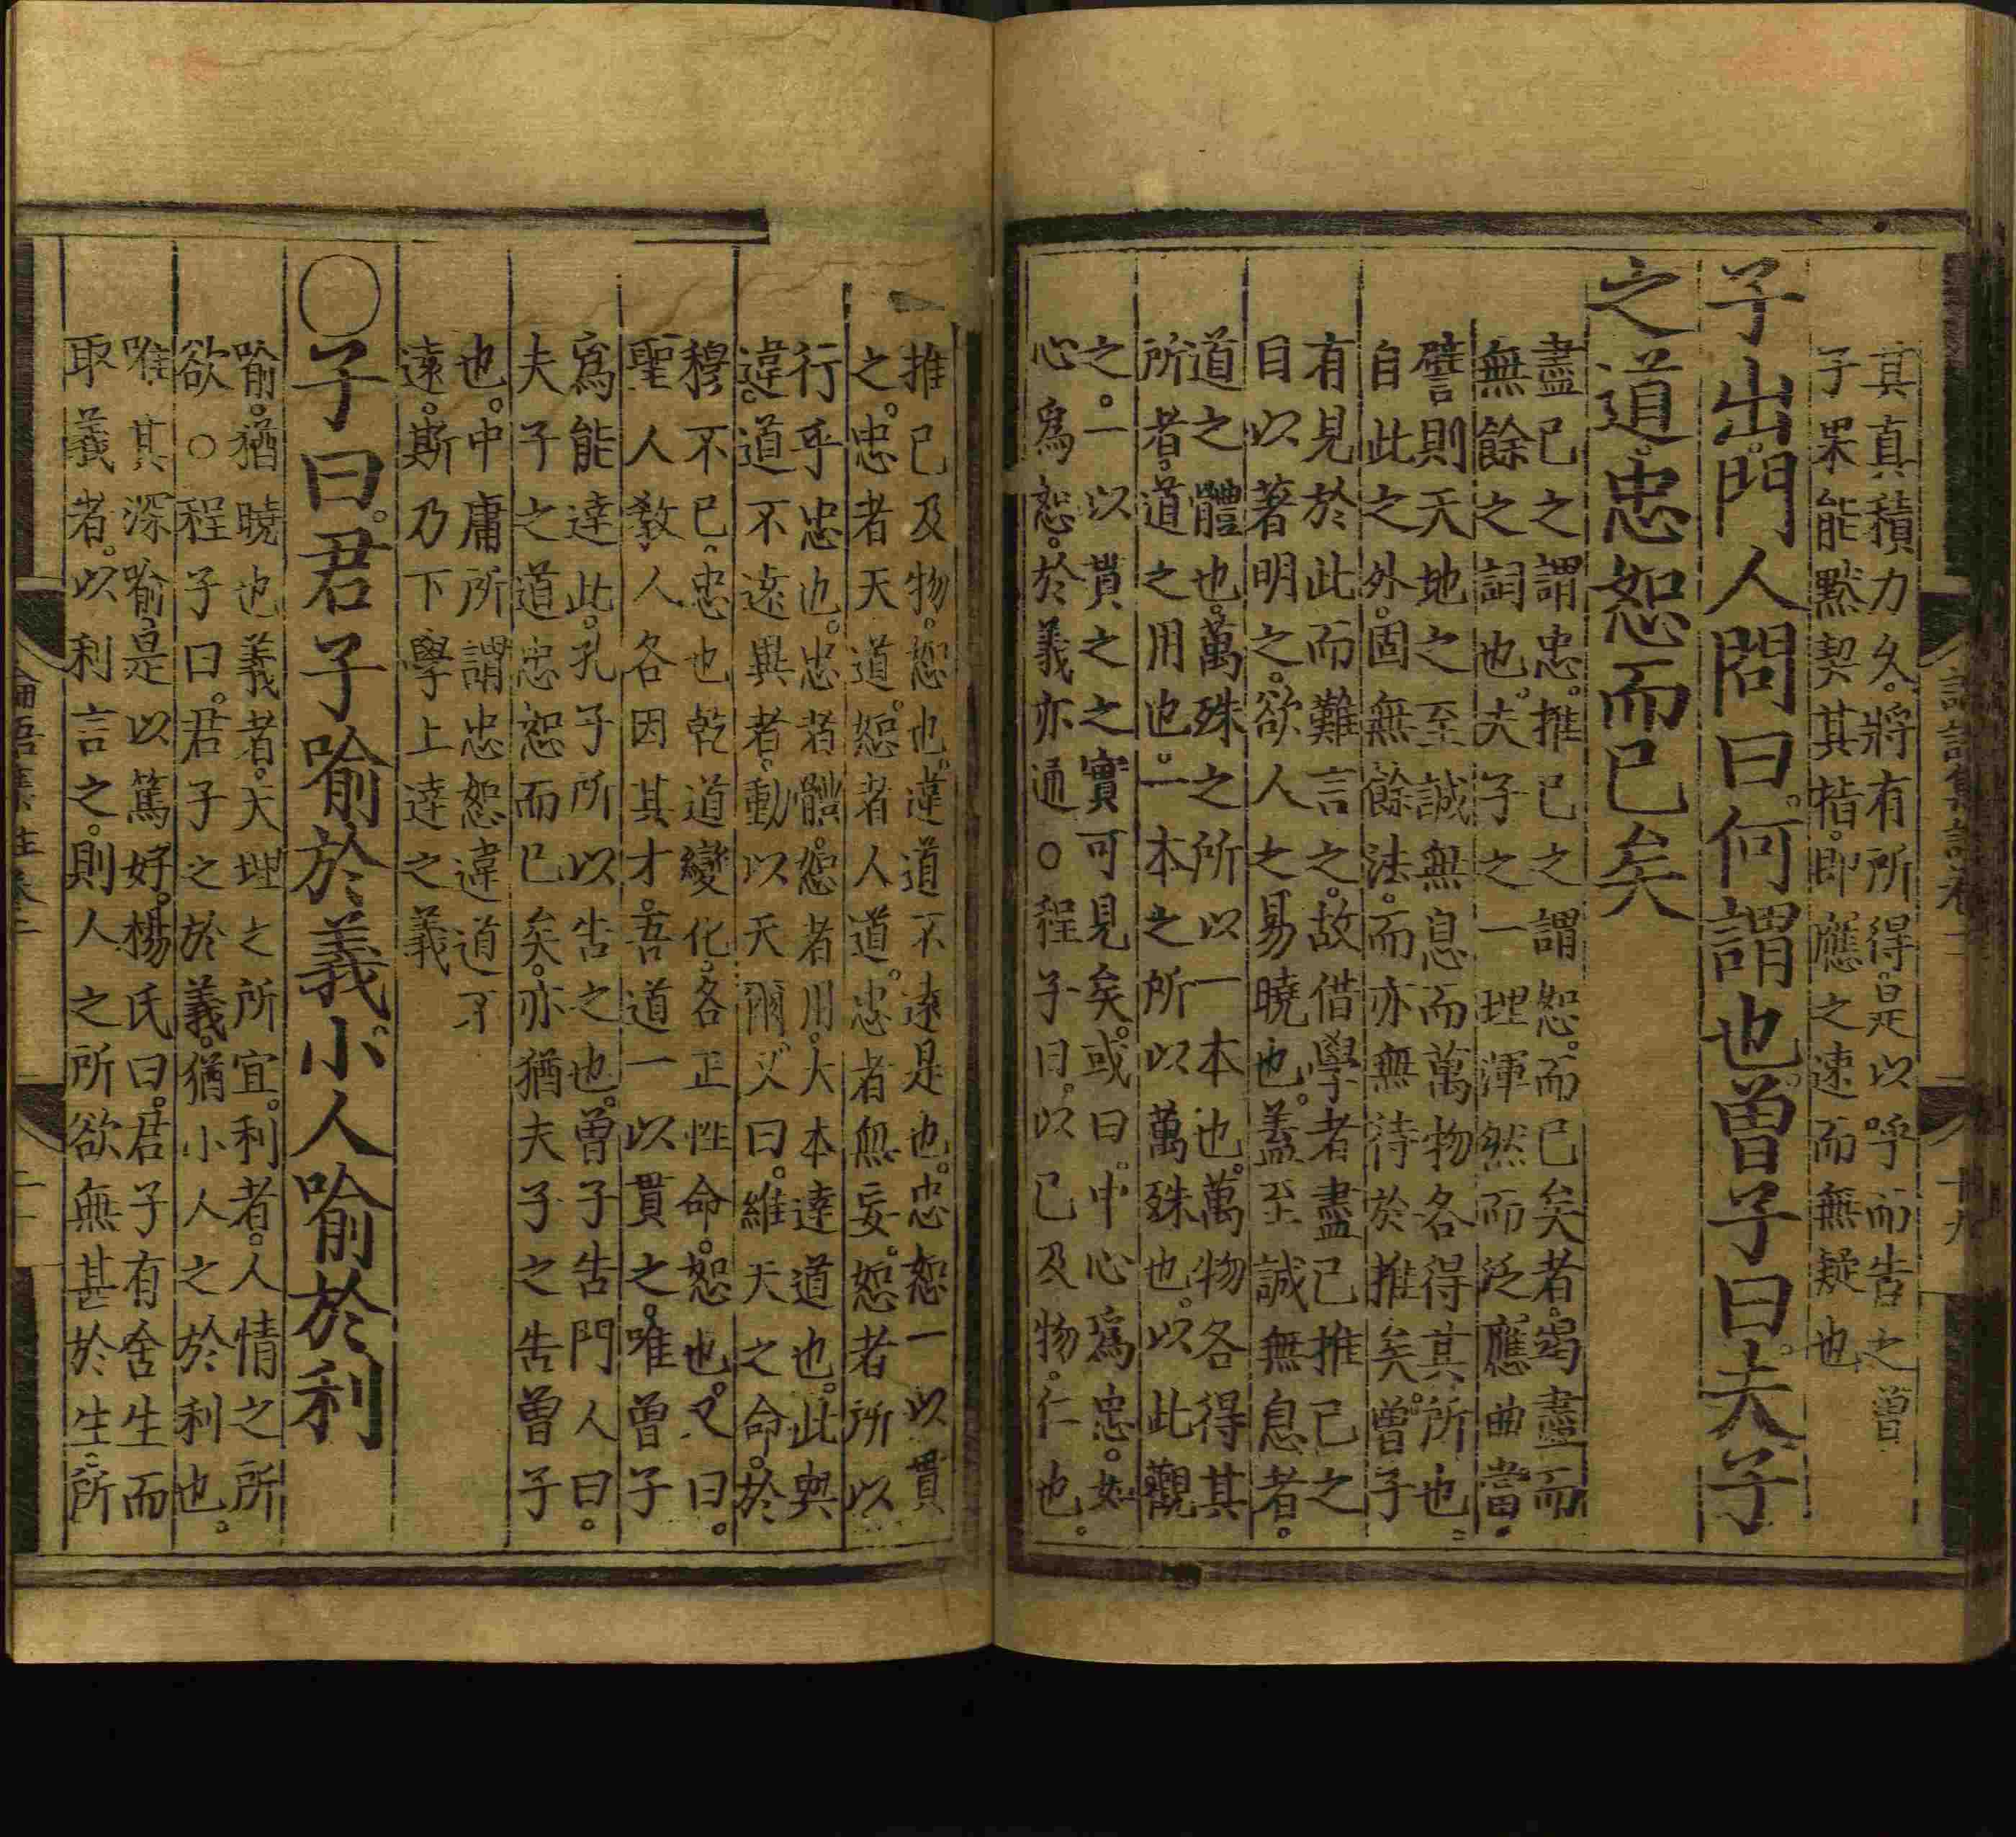 其真積力久。將有所得。是以呼而告之曾
子果能默契其指。即應之速而無疑也
子出。門人問曰。何謂也。曾子曰。夫子
之道。忠恕而已矣
盡己之謂忠。推己之謂恕。而已矣者。竭盡而
無餘之詞也。夫子之一理渾然而泛應曲當。
譬則天地之至誠無息而萬物各得其所也。
自此之外。固無餘法。而亦無待於推矣。曾子
有見於此而難言之。故借學者盡己推己之
目以著明之。欲人之易曉也。蓋至誠無息者。
道之體也。萬殊之所以一本也。萬物各得其
所者。道之用也。一本之所以萬殊也。以此觀
之。一以貫之之實可見矣。或曰。中心爲忠。如
心爲恕。於義亦通○程子曰。以己及物。仁也。
推己及物。恕也。違道不遠是也。忠恕一以貫
之。忠者天道。恕者人道。忠者無妄。恕者所以
行乎忠也。忠者體。恕者用。大本達道也。此與
違。道不遠異者。動以天爾。又曰。維天之命。於
穆不已。忠也乾道變化。各正性命。恕也。又曰。
聖人教人各因其才。吾道一以貫之。唯曾子
爲能達此。孔子所以告之也。曾子告門人曰。
夫子之道忠恕而已矣。亦猶夫子之告曾子
也。中庸所謂忠恕違道不
遠。斯乃下學上達之義
○子曰。君子喻於義。小人喻於利
喻。猶曉也義者。天理之所宜。利者。人情之所
欲○程子曰。君子之於義。猶小人之於利也。
唯其深喻。是以篤好。楊氏曰。君子有舍生而
取義者。以利言之。則人之所欲無甚於生。所
論語集註卷二
十九
論語集註卷二